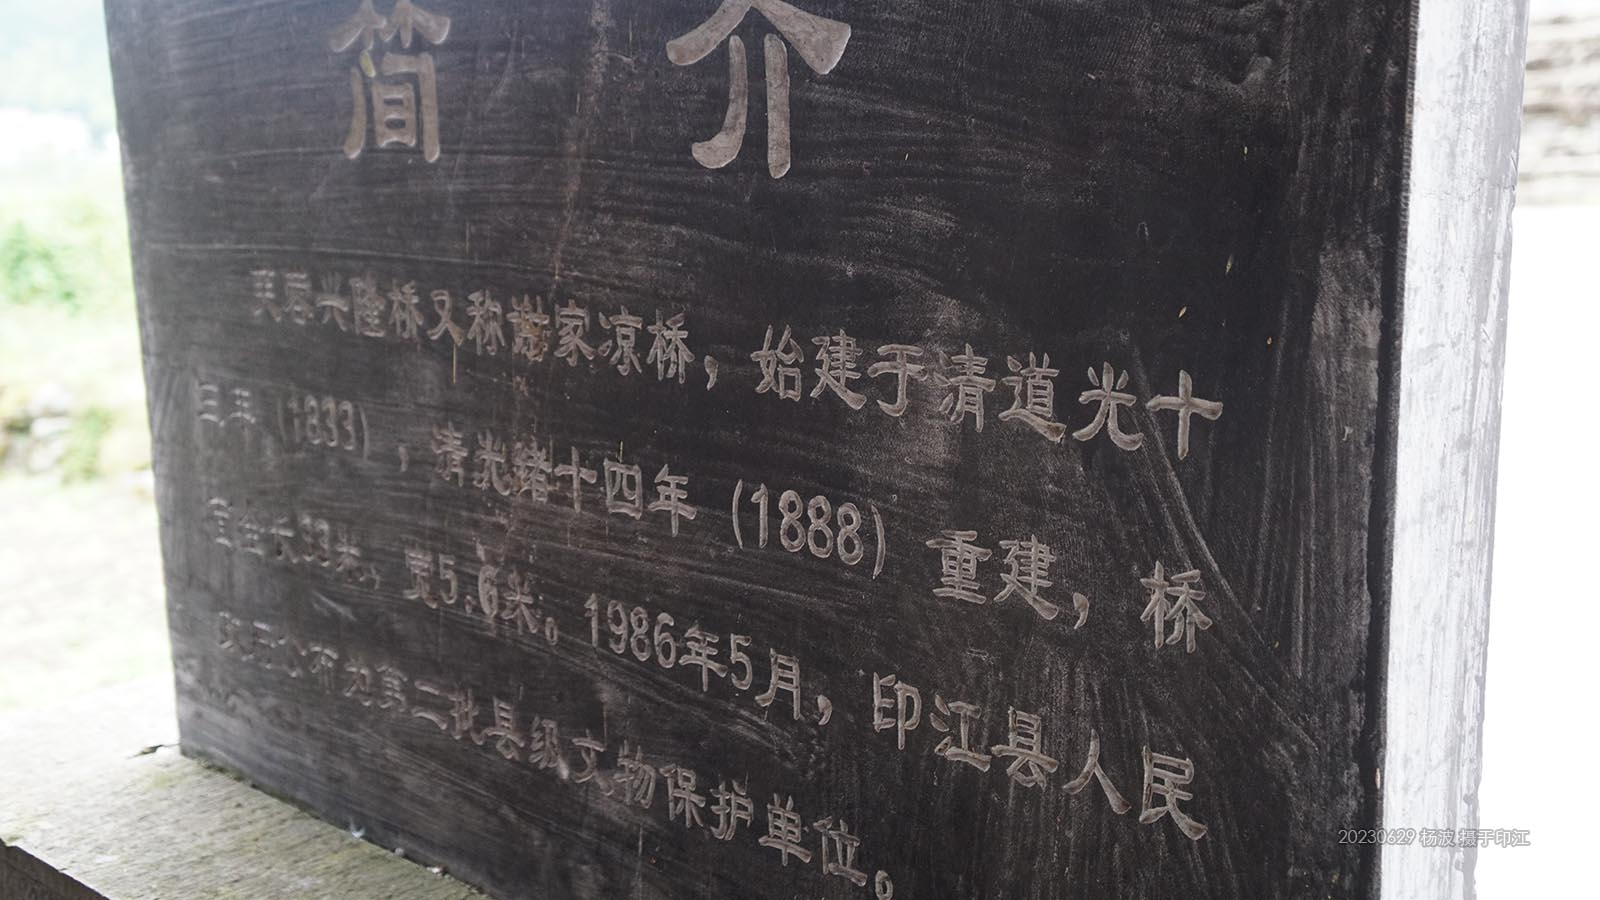 简介
芙蓉兴隆桥又称谢家凉桥，始建于清道光十
三年（1833），清光绪十四年（1888）重建，桥
全长33米，宽5.6米。1986年5月，印江县人民
政府公布为第二批县级文物保护单位。
20230629 杨波 摄于印江